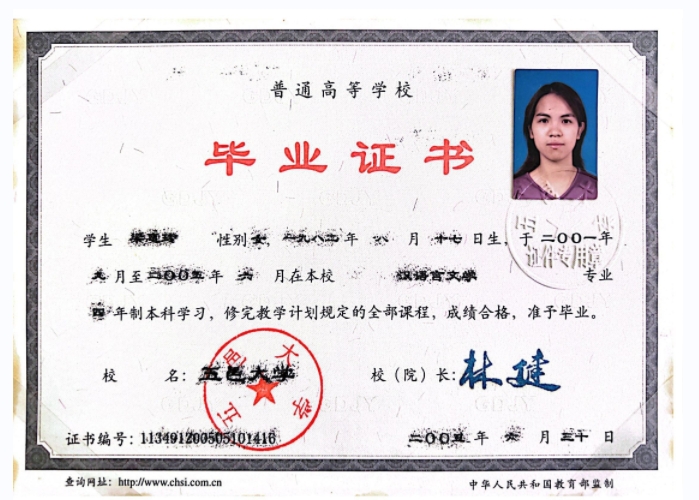 普通高等学校
毕业证书
学生 性别女,一九八二年八月十七日生,于二〇〇一年
九月至二〇〇五年六月在本校 汉语言文学 专业
四年制本科学习,修完教学计划规定的全部课程,成绩合格,准予毕业。
校 名:五邑大学 校(院)长:林健
五邑大学
证件专用章
证书编号:113491200505101416 二〇〇五年六月三十日
查询网址:http://www.chsi.com.cn 中华人民共和国教育部监制